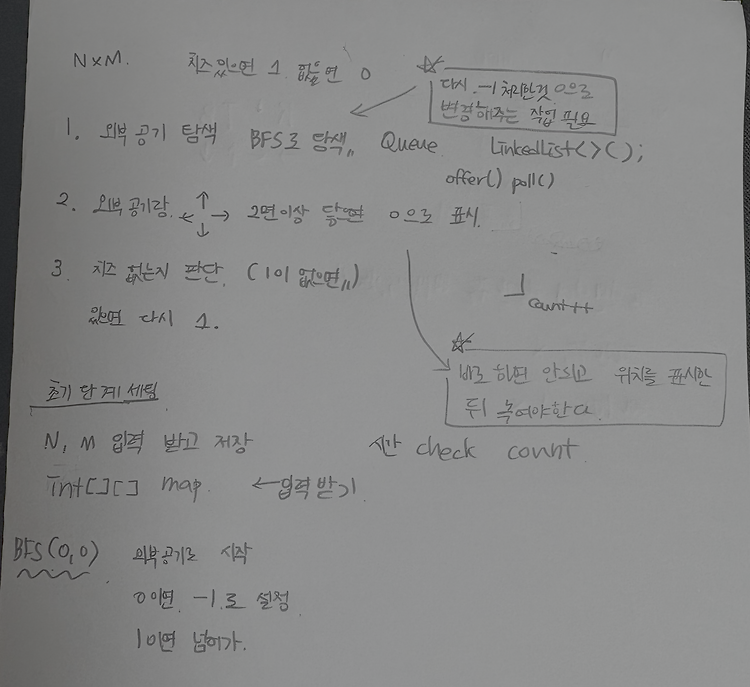 N×M. 치즈있으면 1 없으면 0
다시 -1 처리한것 0으로
변경해주는 작업 필요
1. 외부 공기 탐색 BFS로 탐색,, Queue LinkedList<>();
offer() poll()
2. 외부공기랑 ←↑→↓ 2면이상 닿으면 0으로 표시.
3. 치즈 없는지 판단. (1이 없으면,,)
count++
있으면 다시 1.
바로 하면 안되고 위치를 표시한
뒤 녹여야한다.
초기 단계 세팅
N, M 입력 받고 저장 시간 check count
int[][] map. ← 입력받기
BFS(0,0) 외부공기로 시작
0이면 -1로 설정
1이면 넘어가.